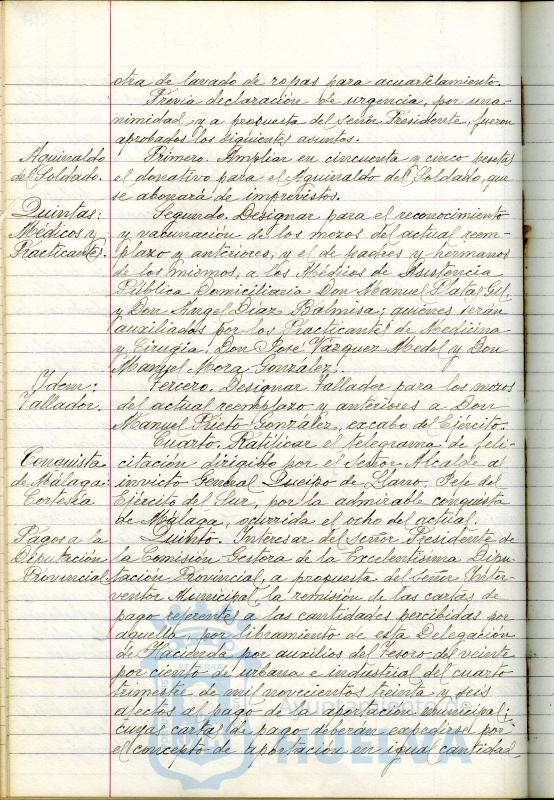 otra de lavado de ropas para acuartelamiento.
Previa declaración de urgencia, por una-
nimidad, y a propuesta del Señor Presidente, fueron
aprobados los siguientes asuntos.
Aguinaldo
del Soldado.
Primero. Ampliar en cincuenta y cinco pesetas
el donativo para el Aguinaldo del Soldado, que
se abonará de imprevistos.
Quintas:
Médicos y
Practicantes.
Segundo. Designar para el reconocimiento
y vacunación de los mozos del actual reem-
plazo y anteriores, y el de padres y hermanos
de los mismos, a los Médicos de Asistencia
Pública Domiciliaria Don Manuel Platas Gil,
y Don Angel Diaz Balmisa; quienes serán
auxiliados por los Practicantes de Medicina
y Cirugía, Don José Vázquez Medel y Don
Manuel Mora González.
Idem:
Tallador.
Tercero. Designar Tallador para los mozos
del actual reemplazo y anteriores a Don
Manuel Prieto González, excabo del Ejército.
Conquista
de Málaga:
Cortesía
Cuarto. Ratificar el telegrama de feli-
citación dirigido por el Señor Alcalde al
invicto General Queipo de Llano, Jefe del
Ejército del Sur, por la admirable conquista
de Málaga, ocurrida el ocho del actual.
Pagos a la
Diputación
Provincial.
Quinto. Interesar del Señor Presidente de
la Comisión Gestora de la Excelentísima Dipu-
tación Provincial, a propuesta del Señor Inter-
ventor Municipal, la remisión de las cartas de
pago referentes a las cantidades percibidas por
aquella, por libramiento de esta Delegación
de Hacienda por auxilios del Tesoro del veinte
por ciento de urbana e industrial del cuarto
trimestre de mil novecientos treinta y seis
afectos al pago de la aportación municipal;
cuyas cartas de pago deberán expedirse por
el concepto de aportación en igual cantidad
Ayuntamiento de
HUELVA